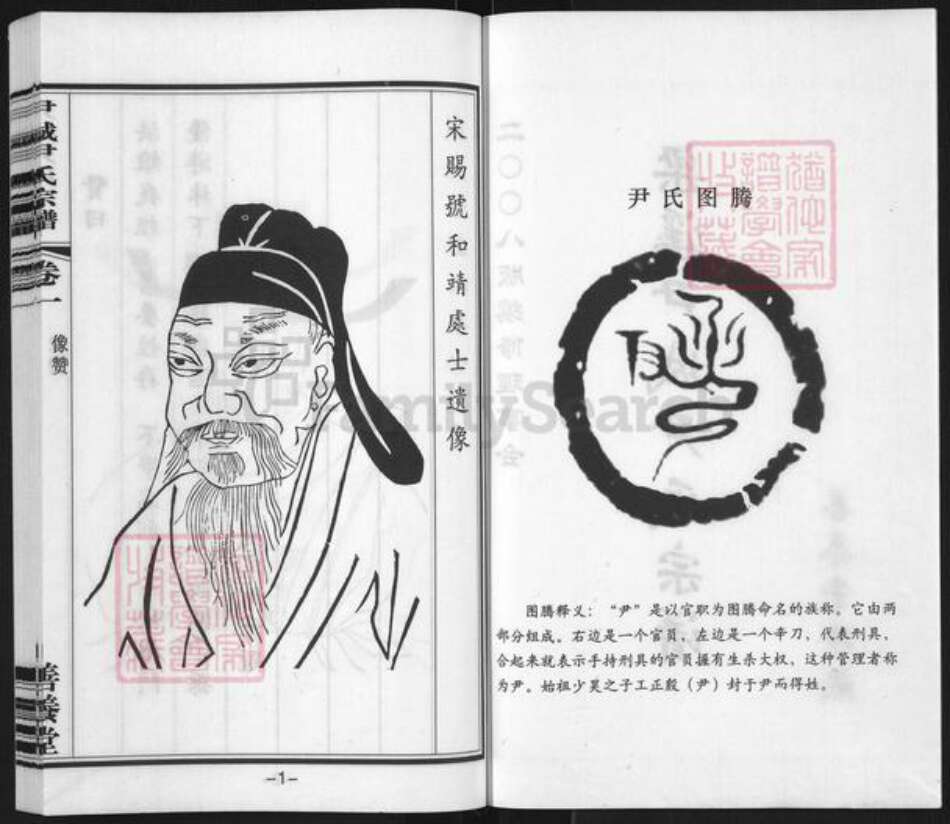 尹氏图腾
图腾释义：“尹”是以官职为图腾命名的族称。它由两
部分组成。右边是一个官员，左边是一个辛刀，代表刑具，
合起来就表示手持刑具的官员握有生杀大权，这种管理者称
为尹。始祖少昊之子工正殷（尹）封于尹而得姓。
宋賜號和靖處士遺像
尹氏宗譜
卷一
像赞
善養堂
-1-
FamilySearch